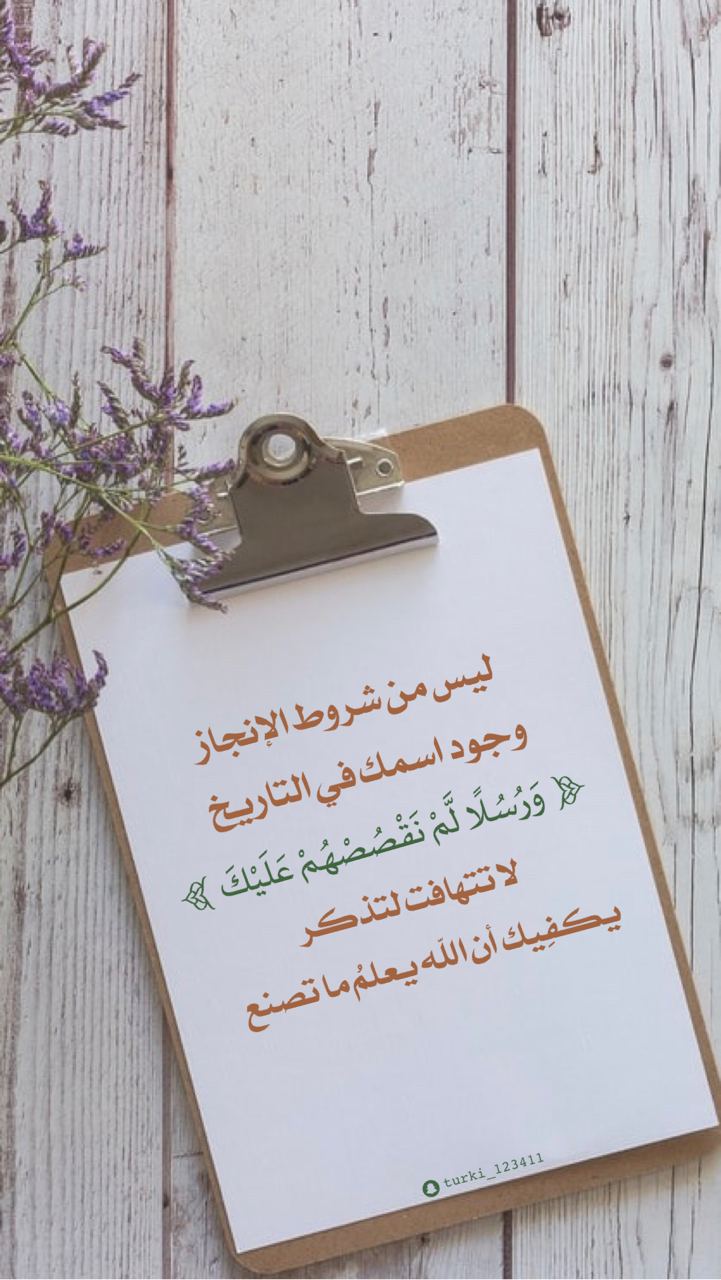 ليس من شروط الإنجاز
وجود اسمك في التاريخ
﴿ وَرُسُلًا لَّمْ نَقْصُصْهُمْ عَلَيْكَ ﴾
لا تتهافت لتذكر
يكفِيك أن اللّه يعلمُ ما تصنع
turki_123411